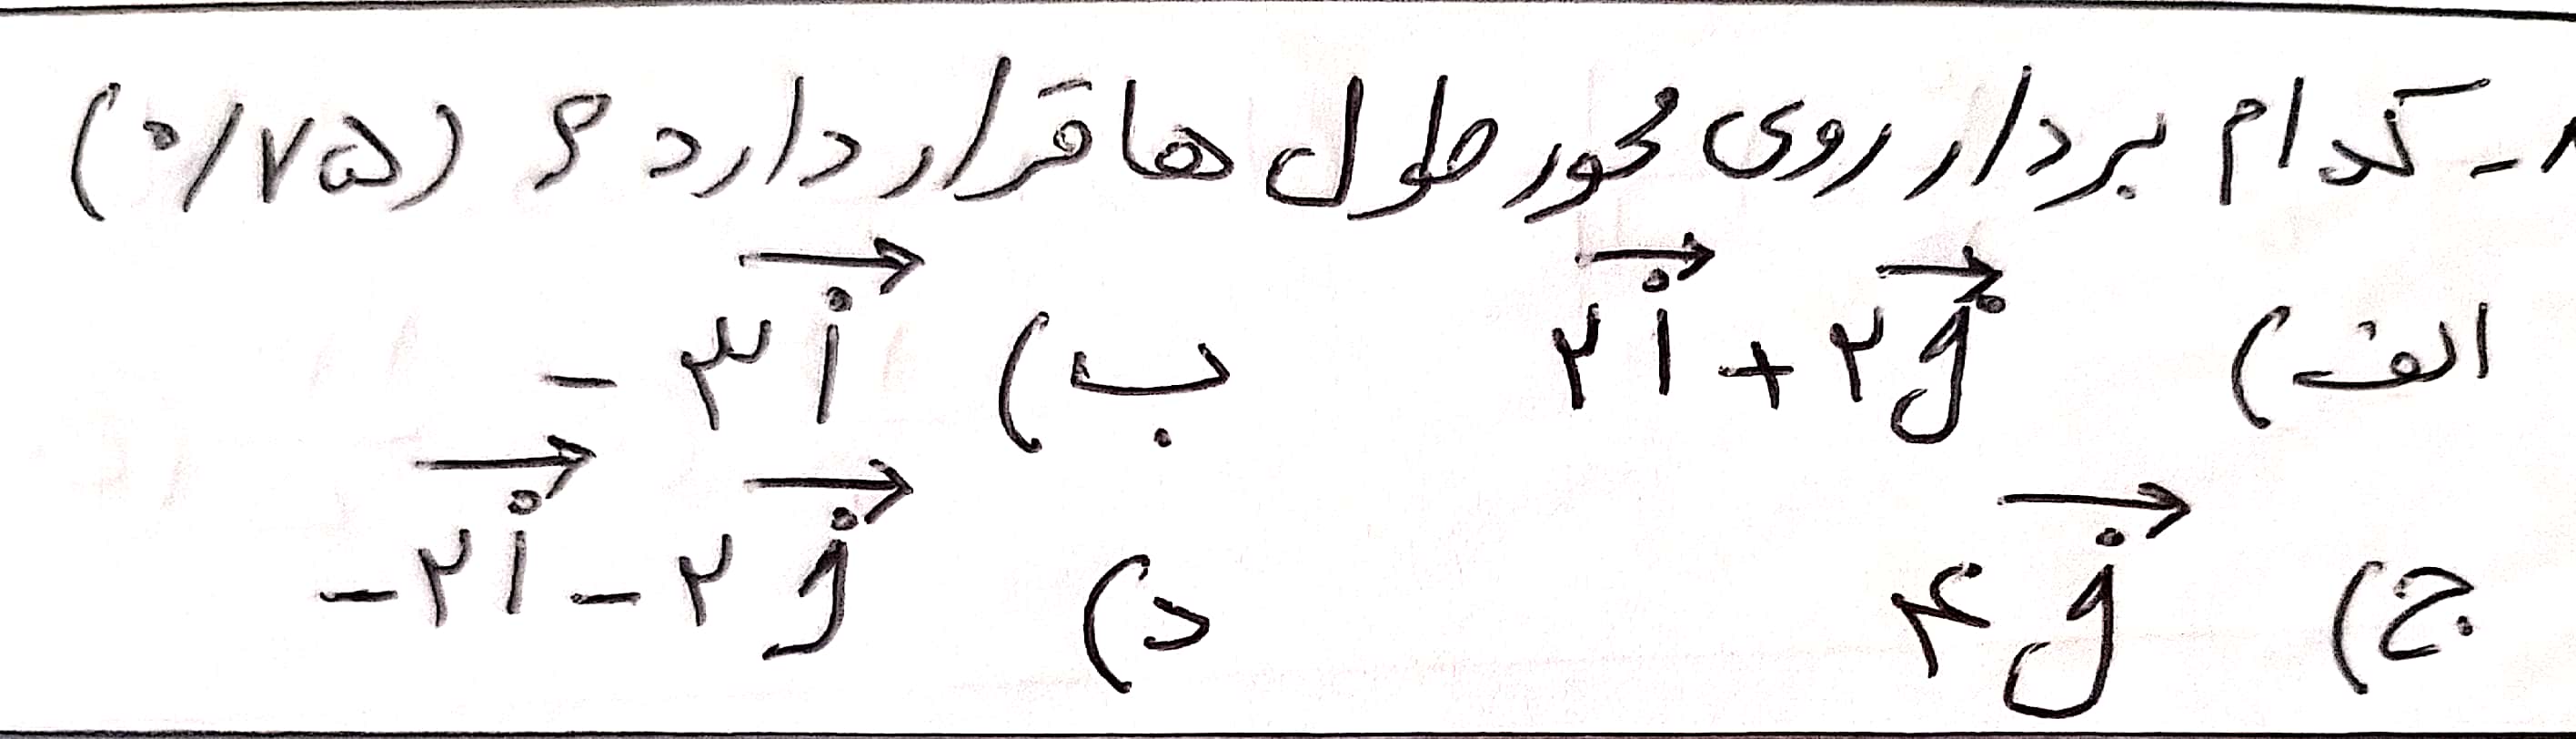 ۸- کدام بردار روی محور طول ها قرار دارد ؟ (۰/۷۵)
الف) ۲i⃗ + ۲j⃗ ب) -۳i⃗
ج) ۴j⃗ د) -۲i⃗ - ۲j⃗